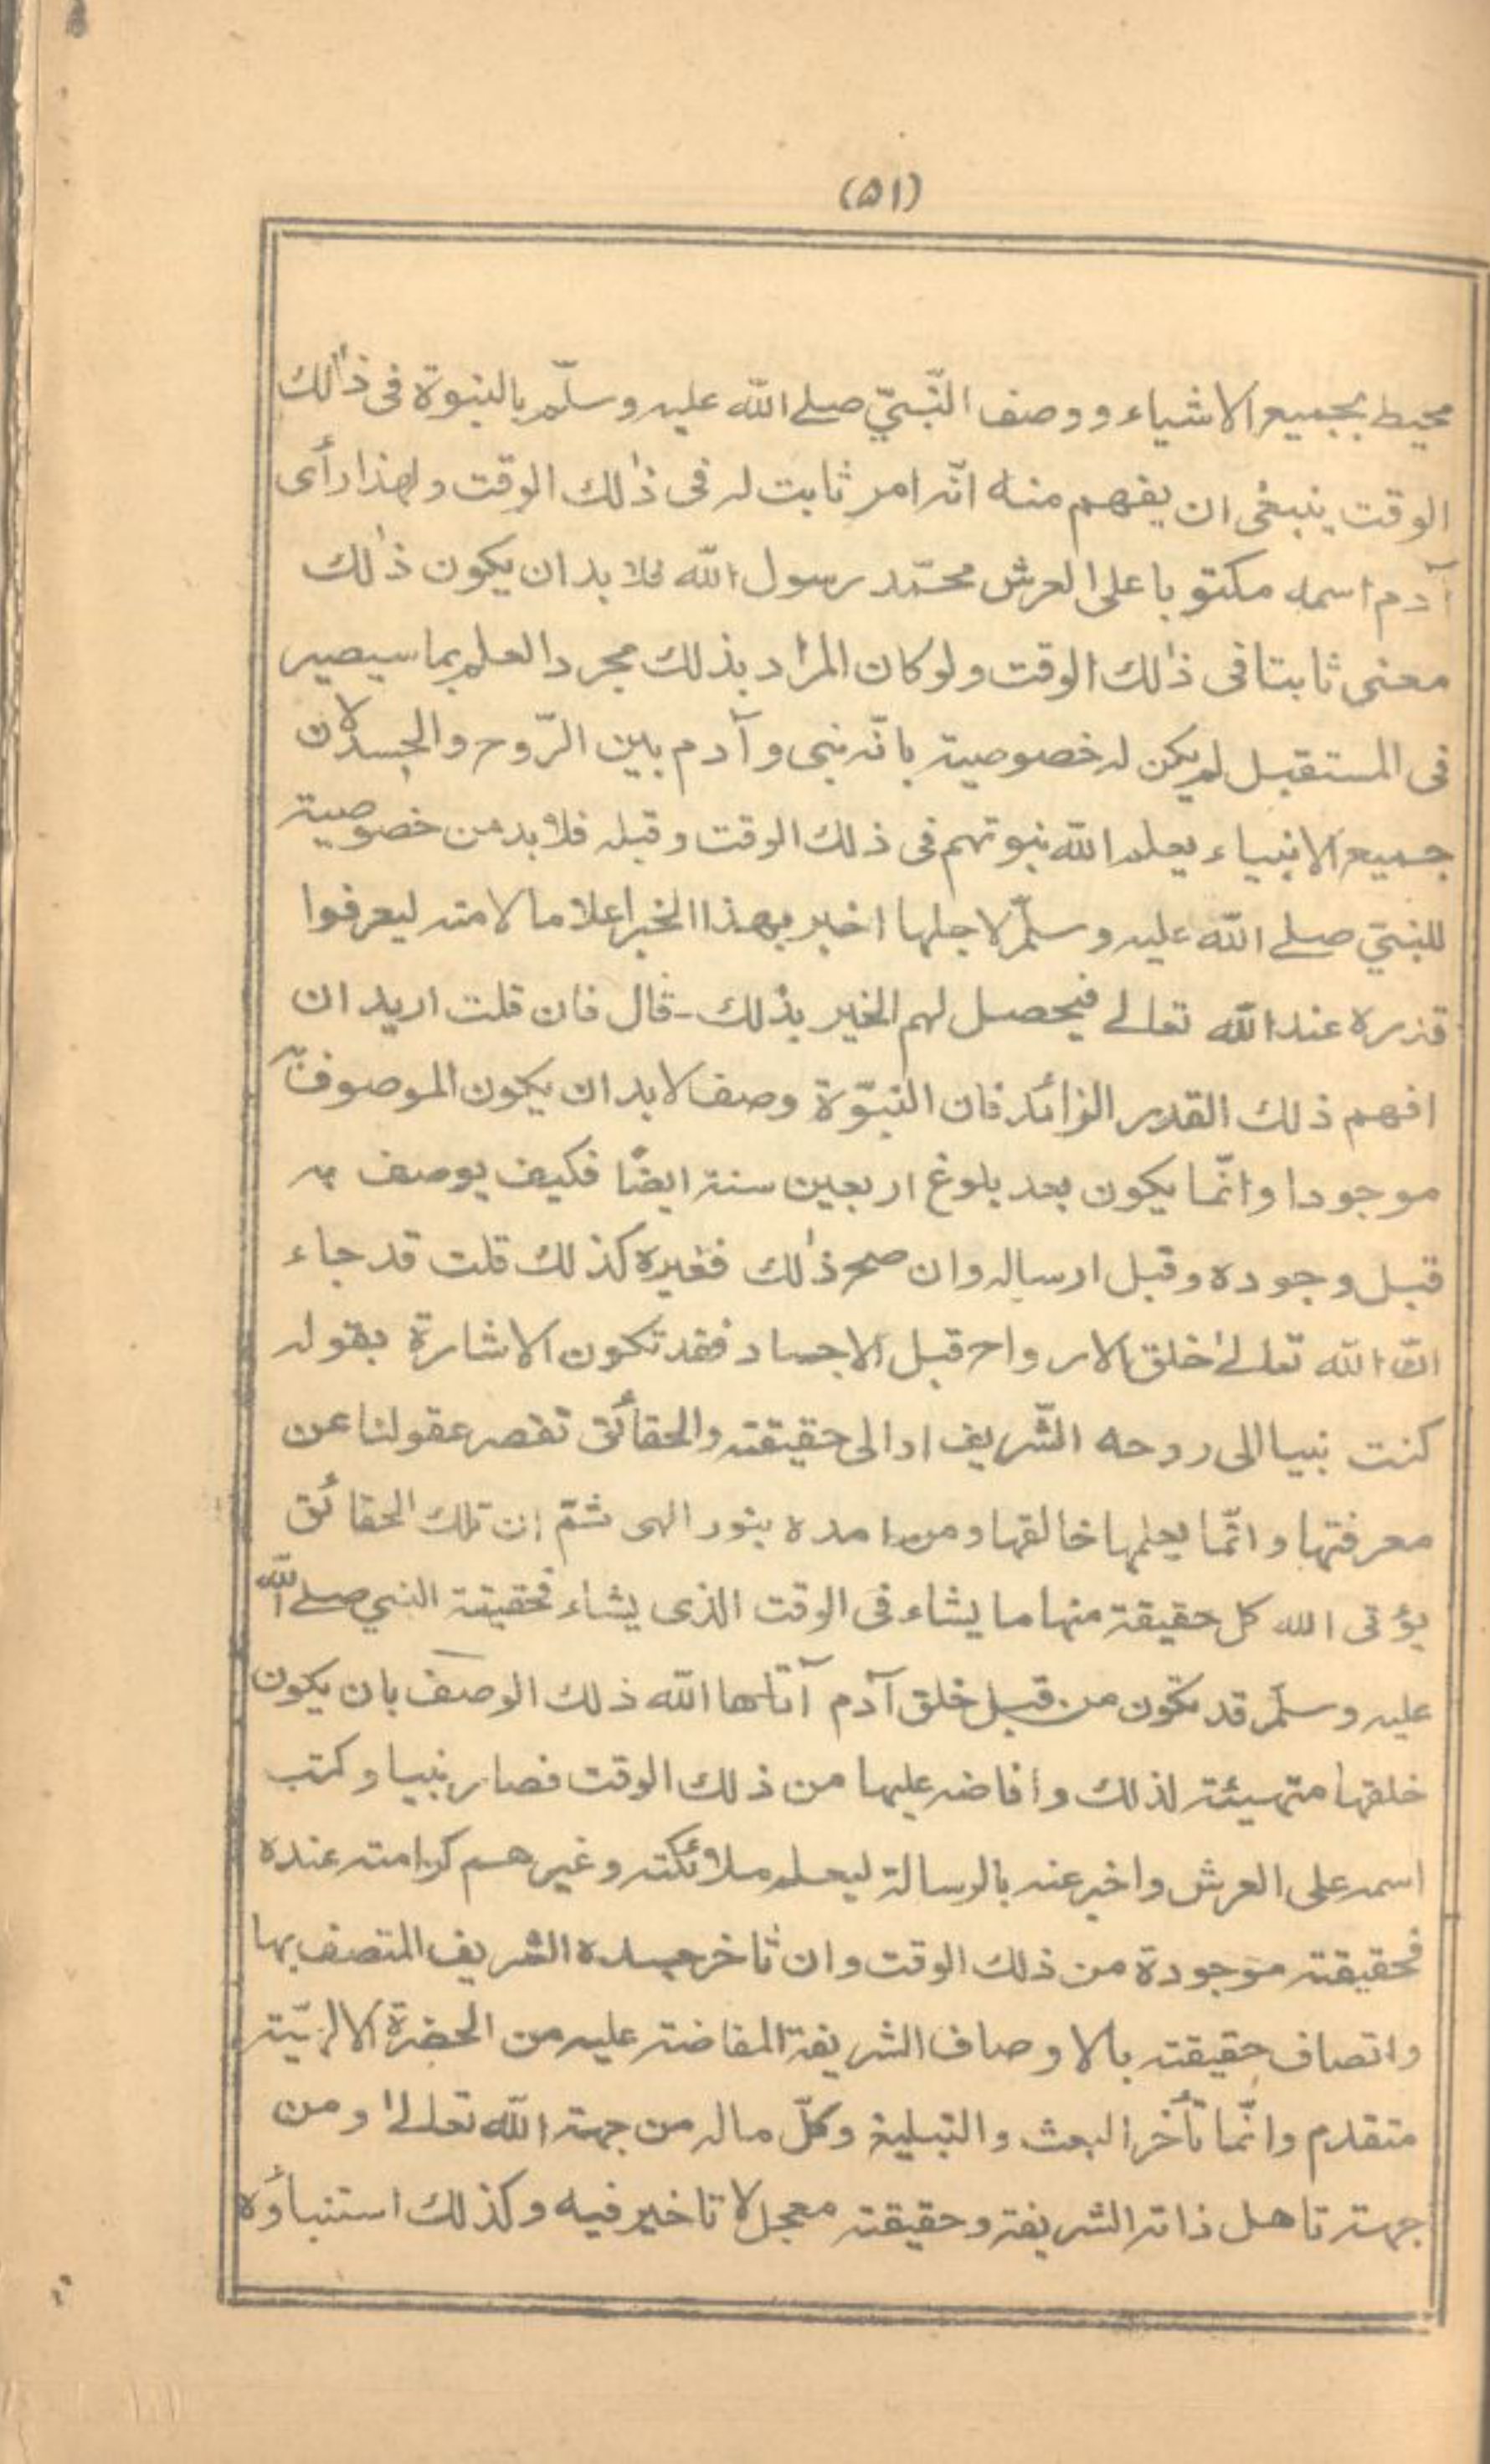 (۵۱)
محيط بجميع الاشياء ووصف النّبيّ صلے الله عليه وسلّم بالنبوة فى ذٰلك
الوقت ينبغى ان يفهم منه انّه امر ثابت له فى ذٰلك الوقت ولهذا رأى
آدم اسمه مكتوبا على العرش محمّد رسول الله فلا بد ان يكون ذٰلك
معنى ثابتا فى ذٰلك الوقت ولو كان المراد بذلك مجرد العلم بما سيصير
فى المستقبل لم يكن له خصوصية بانّه نبى وآدم بين الرّوح والجسد لان
جميع الانبياء يعلم الله نبوتهم فى ذلك الوقت وقبله فلا بد من خصوصية
للنبيّ صلے الله عليه وسلّم لاجلها اخبر بهذا الخبر اعلاما لامته ليعرفوا
قدره عند الله تعالے فيحصل لهم الخير بذٰلك - قال فان قلت اريد ان
افهم ذلك القدر الزائد فان النبوّة وصف لا بد ان يكون الموصوف به
موجودا وانّما يكون بعد بلوغ اربعين سنة ايضًا فكيف يوصف به
قبل وجوده وقبل ارساله وان صح ذٰلك فغيره كذلك قلت قد جاء
انّ الله تعالےٰ خلق الارواح قبل الاجساد فقد تكون الاشارة بقوله
كنت نبيا الى روحه الشّريف او الى حقيقته والحقائق تقصر عقولنا عن
معرفتها وانّما يعلمها خالقها ومن امده بنور الهى ثمّ ان تلك الحقائق
يؤتى الله كل حقيقة منها ما يشاء فى الوقت الذى يشاء فحقيقة النبي صلے الله
عليه وسلّم قد تكون من قبل خلق آدم آتاها الله ذلك الوصف بان يكون
خلقها متهيئة لذلك وافاضه عليها من ذلك الوقت فصار نبيا وكتب
اسمه على العرش واخبر عنه بالرسالة ليعلم ملائكته وغيرهم كرامته عنده
فحقيقته موجودة من ذلك الوقت وان تاخر جسده الشريف المتصف بها
واتصاف حقيقته بالاوصاف الشريفة المفاضة عليه من الحضرة الالهيّة
متقدم وانّما تأخر البعث والتبليغ وكلّ ماله من جهة الله تعالےٰ ومن
جهة تاهل ذاته الشريفة وحقيقته معجل لا تاخير فيه وكذلك استنباؤه